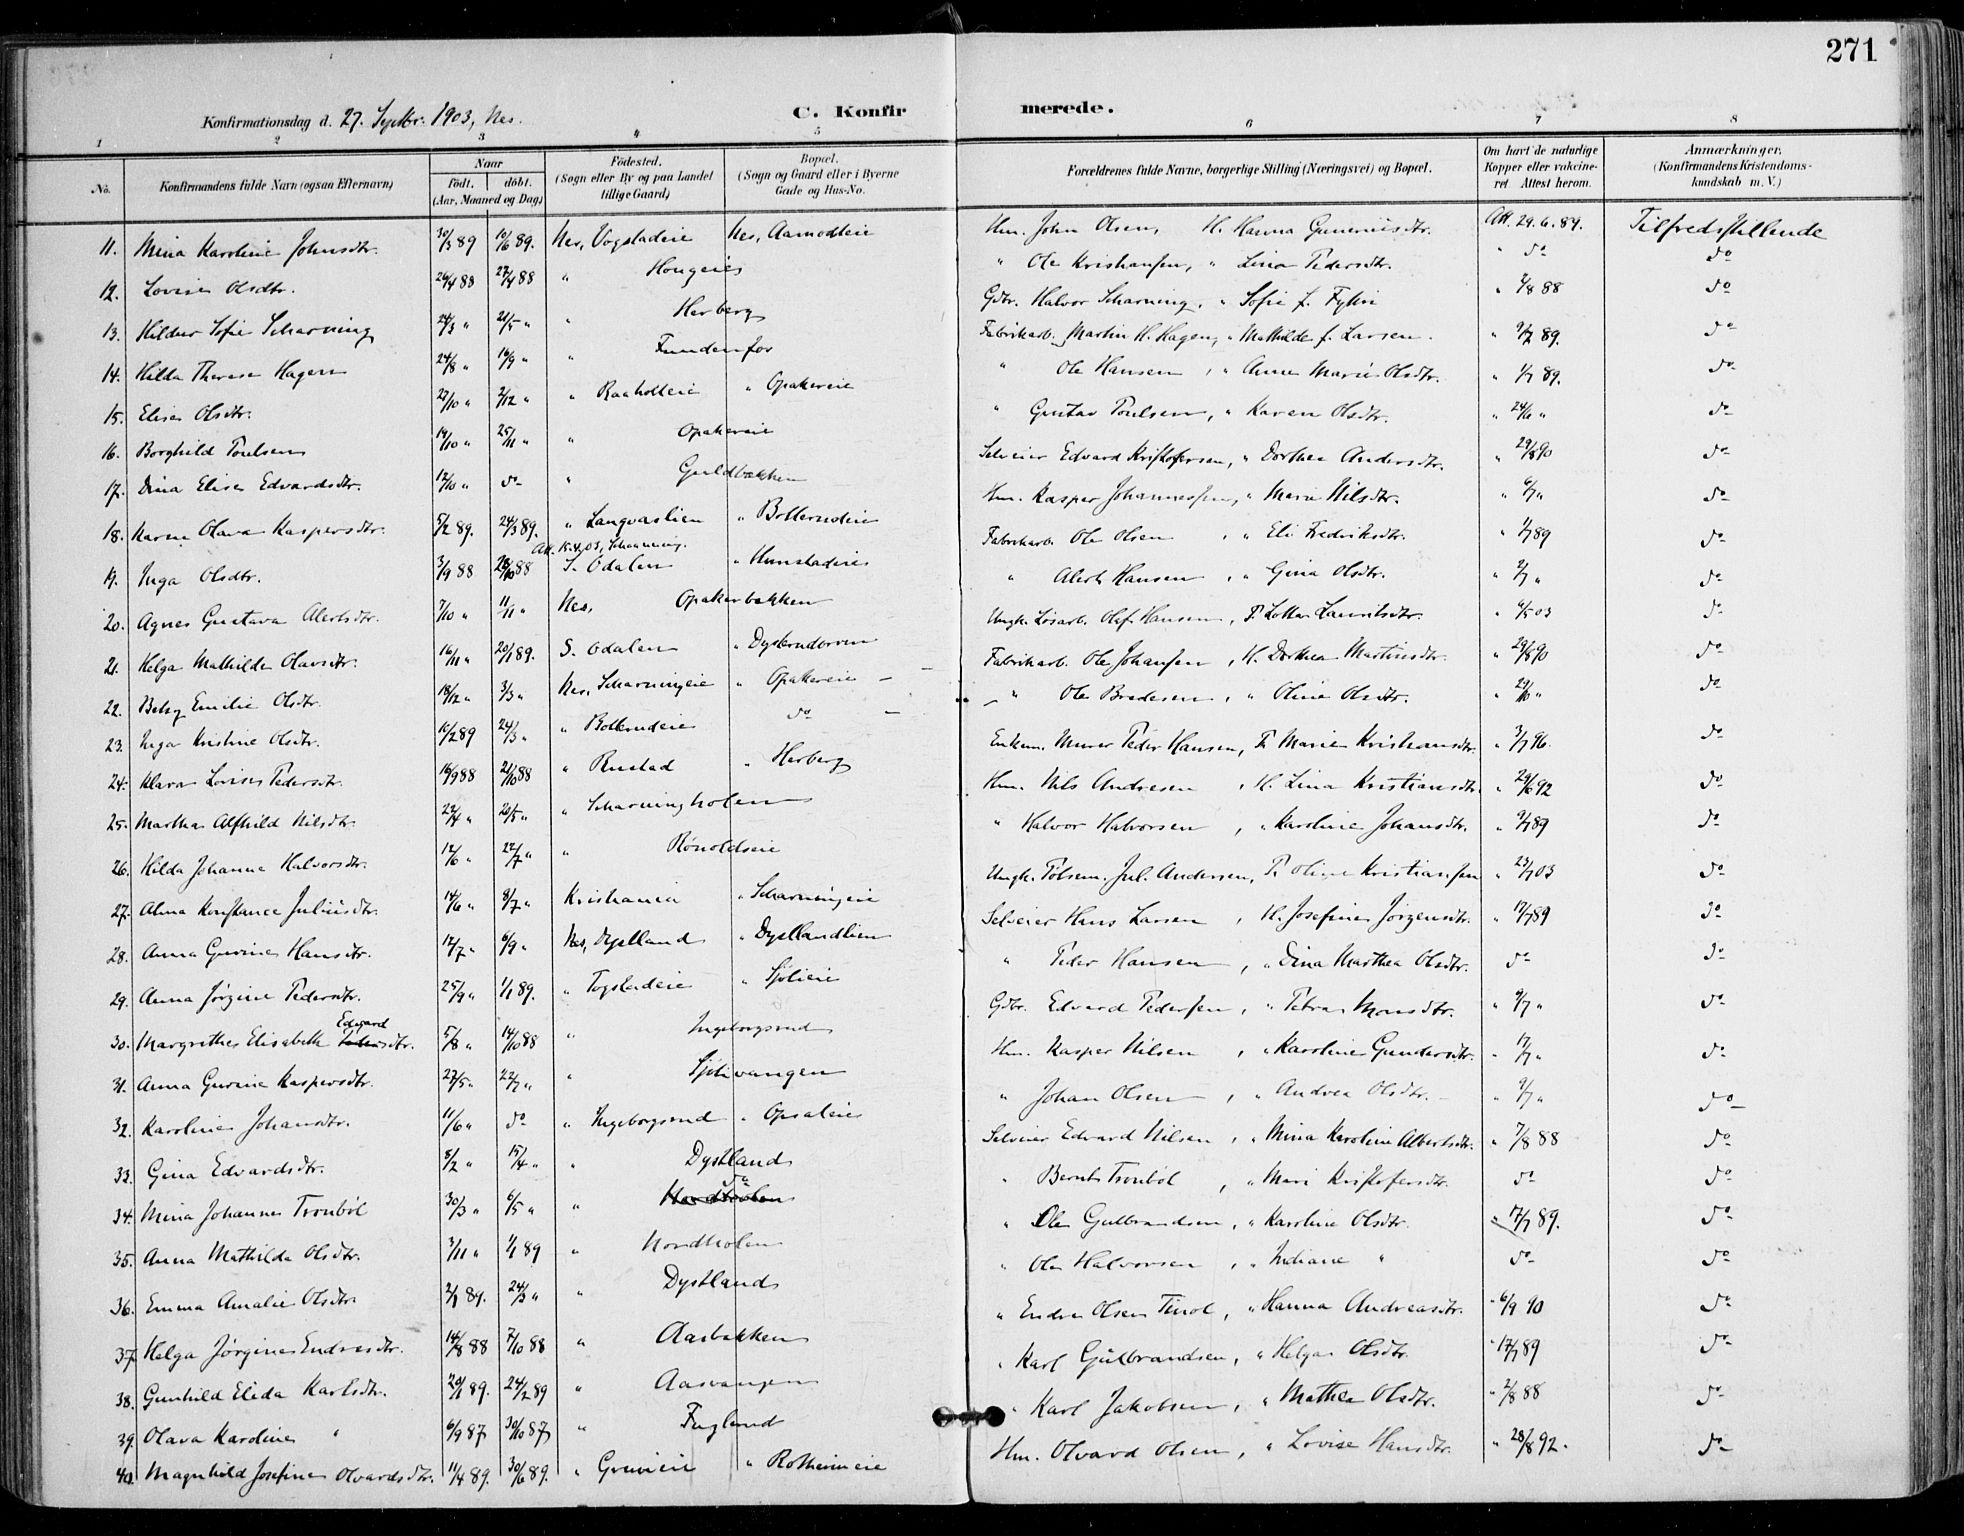 271
Konfirmationsdag d. 27. Septbr. 1903, Nes.
C. Konfirmerede.
1 2 3 4 5 6 7 8
No. Konfirmandens fulde Navn (ogsaa Efternavn) Naar födt. döbt. (Aar, Maaned og Dag) Födested. (Sogn eller By og paa Landet tillige Gaard) Bopæl. (Sogn og Gaard eller i Byerne Gade og Hus-No. Forældrenes fulde Navne, borgerlige Stilling (Næringsvei) og Bopæl. Om havt de naturlige Kopper eller vakcineret. Attest herom. Anmærkninger. (Konfirmandens Kristendomskundskab m. V.)
11. Mina Karoline Johnsdtr. 30/3 89 10/6 89. Nes, Vogsladeie Nes, Aamodteie Hm. John Olsen, H. Hanna Guneriusdtr. Att. 29.6.89. Tilfredsstillende
12. Lovise Olsdtr. 26/4 88 27/4 88 " Hougeie " Ole Kristiansen, " Lina Pedersdtr. " do do
13. Hildur Sofie Scharning 24/3 " 21/5 " " Herberg Gdbr. Halvor Scharning, " Sofie f. Fylhn " 2/8 88 do
14. Hilda Therese Hagen 24/8 " 16/9 " " Fundenfos Fabrikarb. Martin H. Hagen, " Mathilde f. Larsen. " 9/7 89. do
15. Elise Olsdtr. 27/10 " 2/12 " " Raaholteie " Opakereie " Ole Hansen, " Anne Marie Olsdtr. " 1/7 89. do
16. Borghild Poulsen 14/10 " 25/11 " " Opakereie " Gustav Poulsen, " Karen Olsdtr. " 24/6 " do
17. Dina Elise Edvardsdtr. 12/10 " do " Guldbakken Selveier Edvard Kristofersen, " Dorthea Andersdtr. " 29/8 90 do
18. Karen Olava Kaspersdtr. 5/2 89. 24/3 89. " Langvaslien " Bollerudeie Hm. Kasper Johannessen, " Maria Nilsdtr. " 6/7 " do
Att. 15.4.03, Scharning.
19. Inga Olsdtr. 3/9 88 28/10 88 S. Odalen " Hunstadeie Fabrikarb. Ole Olsen, " Eli Fredriksdtr. " 1/7 89 do
20. Agnes Gustava Alertsdtr. 7/10 " 11/11 " Nes, Opakerbakken " Alert Hansen, " Gina Olsdtr. " 2/7 " do
21. Helga Mathilde Olavsdtr. 16/11 " 20/1 89. S. Odalen " Dysterudorven Ungk. Løsarb. Olaf Hansen, P. Lotta Lauritsdtr. " 6/5 03 do
22. Betsy Emilie Olsdtr. 18/2 " 3/3 " Nes, Scharningeie " Opakereie – Fabrikarb. Ole Johansen, H. Dorthea Martinsdtr. " 29/8 90 do
23. Inga Kristine Olsdtr. 10/2 89 24/3 " " Bollerudeie do – " Ole Bredesen, " Oline Olsdtr. " do
24. Klara Lovise Pedersdtr. 16/9 88 21/10 88 " Rustad " Herberg Enkem. Murer Peder Hansen, P. Marie Kristiansdtr. " 3/7 96. do
25. Martha Alfhild Nilsdtr. 22/4 " 20/5 " " Scharningholen Hm. Nils Andresen, H. Lina Kristiansdtr. " 29/6 92 do
26. Hilda Johanne Halvorsdtr. 12/6 " 22/7 " " Rønoldseie " Halvor Halvorsen, " Karoline Johansdtr. " 9/7 89 do
27. Alma Konstance Juliusdtr. 14/6 " 8/7 " Kristiania " Scharningeie Ungk. Pølsem. Jul. Andersen, P. Oline Kristiansen " 23/7 03 do
28. Anna Gurine Hansdtr. 12/7 " 6/9 " Nes, Dystland " Dystlandlien Selveier Hans Larsen, H. Josefine Jørgensdtr. " 12/7 89 do
29. Anna Jørgine Pedersdtr. 25/9 " 1/1 89. " Togstadeie " Sjølieie " Peder Hansen, " Dina Marthea Olsdtr. do do
30. Margrethe Elisabeth Edvardsdtr. 5/8 " 14/10 88 " Ingeborgsrud Gdbr. Edvard Pedersen, " Petra Monsdtr. " 9/7 " do
31. Anna Gurine Kaspersdtr. 27/5 " 22/7 " " Sjølivangen Hm. Kasper Nilsen, " Karoline Gundersdtr. " 17/7 " do
32. Karoline Johansdtr. 11/6 " do " Ingeborgsrud " Opsaleie " Johan Olsen, " Andrea Olsdtr. – " 9/7 " do
33. Gina Edvardsdtr. 5/2 " 15/4 " " Dystland Selveier Edvard Nilsen, " Mina Karoline Albertsdtr. " 7/8 88 do
34. Mina Johanne Tronbøl 30/3 " 6/5 " " do Nordholen " Bernt Tronbøl, " Mari Kristofersdtr. do do
35. Anna Mathilda Olsdtr. 3/11 " 1/1 89 " Nordholen " Ole Gulbrandsen, " Karoline Olsdtr. " 17/7 89. do
36. Emma Amalie Olsdtr. 2/1 89. 24/3 " " Dystland " Ole Halvorsen, " Indiane " do do
37. Helga Jørgine Endresdtr. 14/8 88 7/10 88 " Aasbakken " Endre Olsen Tinol, " Hanna Andreasdtr. " 6/9 90 do
38. Gunhild Elida Karlsdtr. 20/1 89. 24/2 89 " Aasvangen " Karl Gulbrandsen, " Helga Olsdtr. " 17/7 89 do
39. Olava Karoline " 6/9 87 30/10 87 " Fugland " Karl Jakobsen, " Mathea Olsdtr. " 2/8 88 do
40. Magnhild Josefine Olvardsdtr. 11/4 89. 30/6 89. " Gruvieie " Rotherimeie Hm. Olvard Olsen, " Lovise Hansdtr. " 28/8 92. do